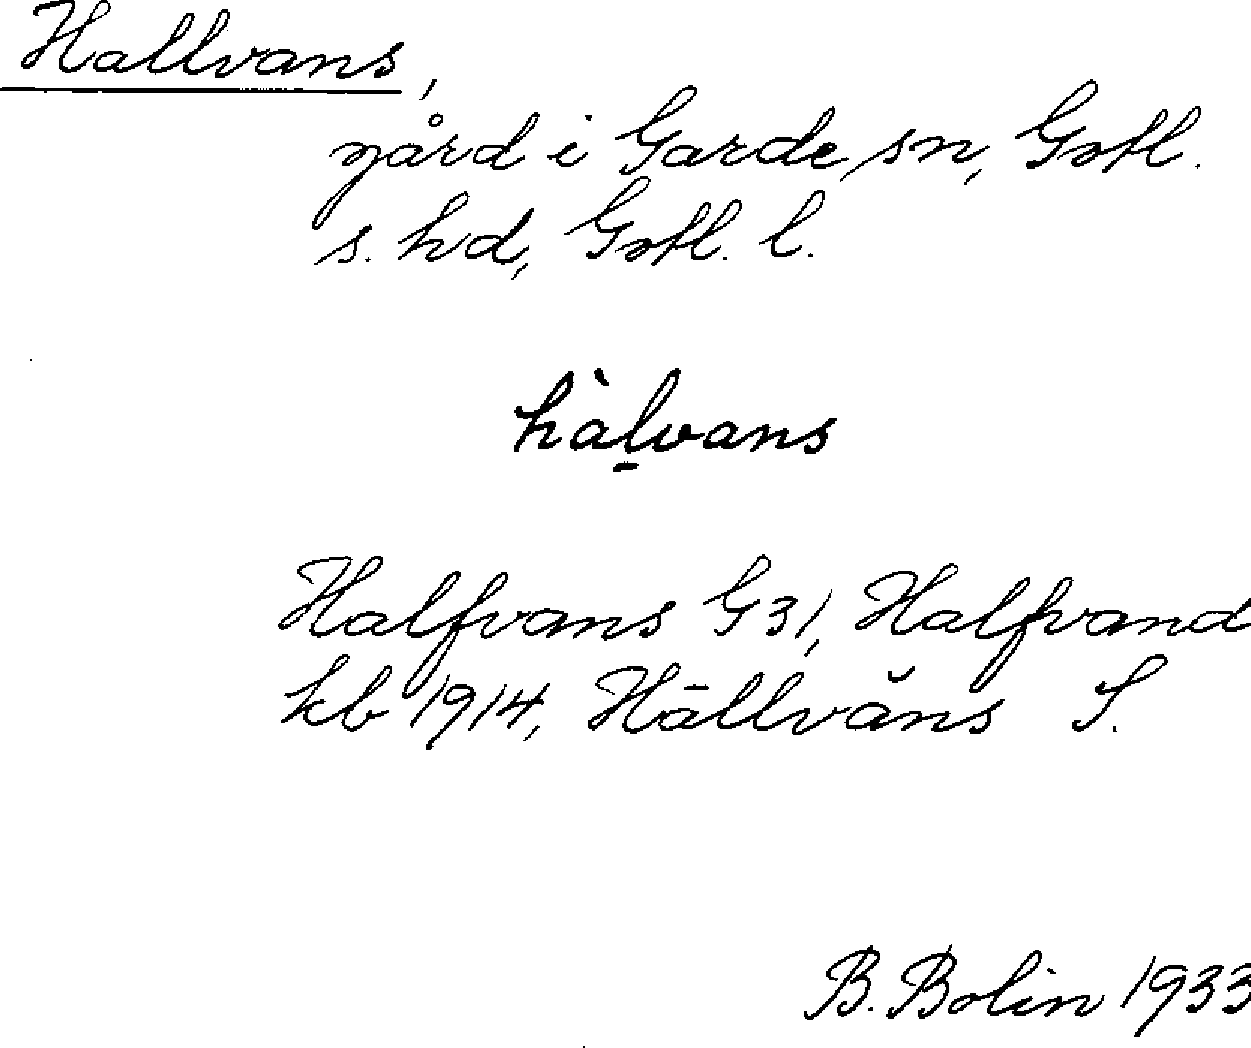 Hallvans,
gård i Garde sn, Gotl.
s. hd, Gotl. l.
hàl̠vans
Halfvans G31, Halfvand
kb 1914, Hāllvăns S.
B. Bolin 1933